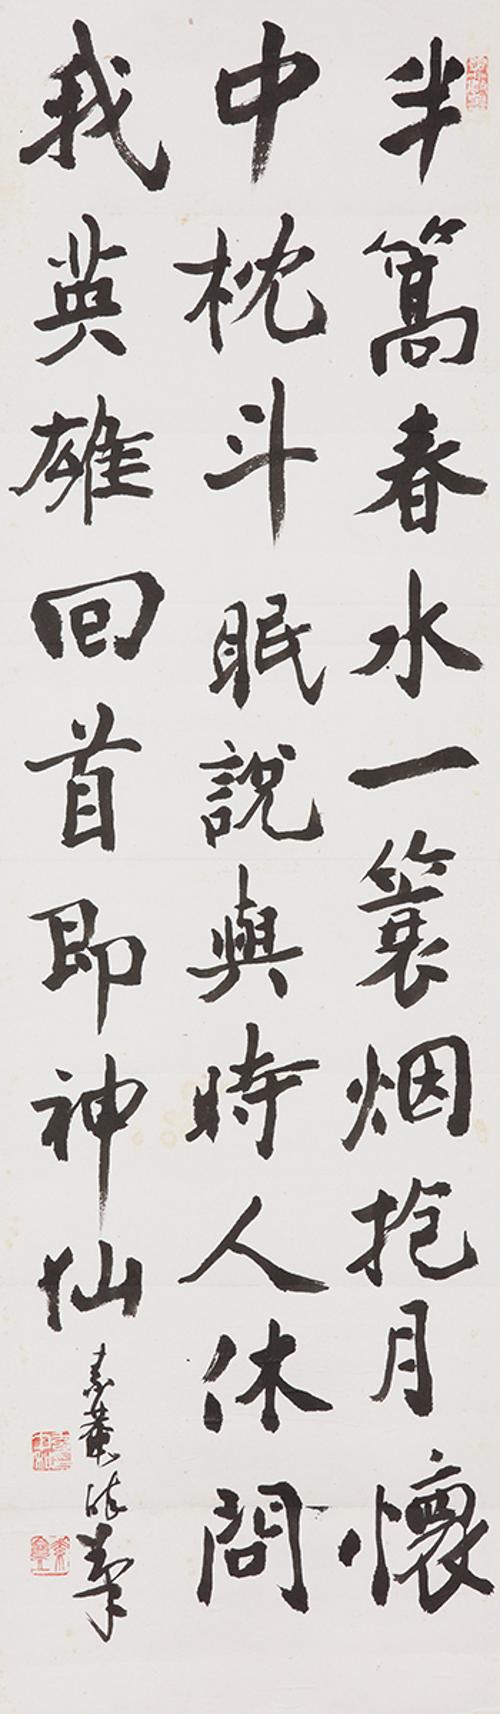 半篙春水一蓑烟抱月懷
中枕斗眠說與時人休問
我英雄回首即神仙